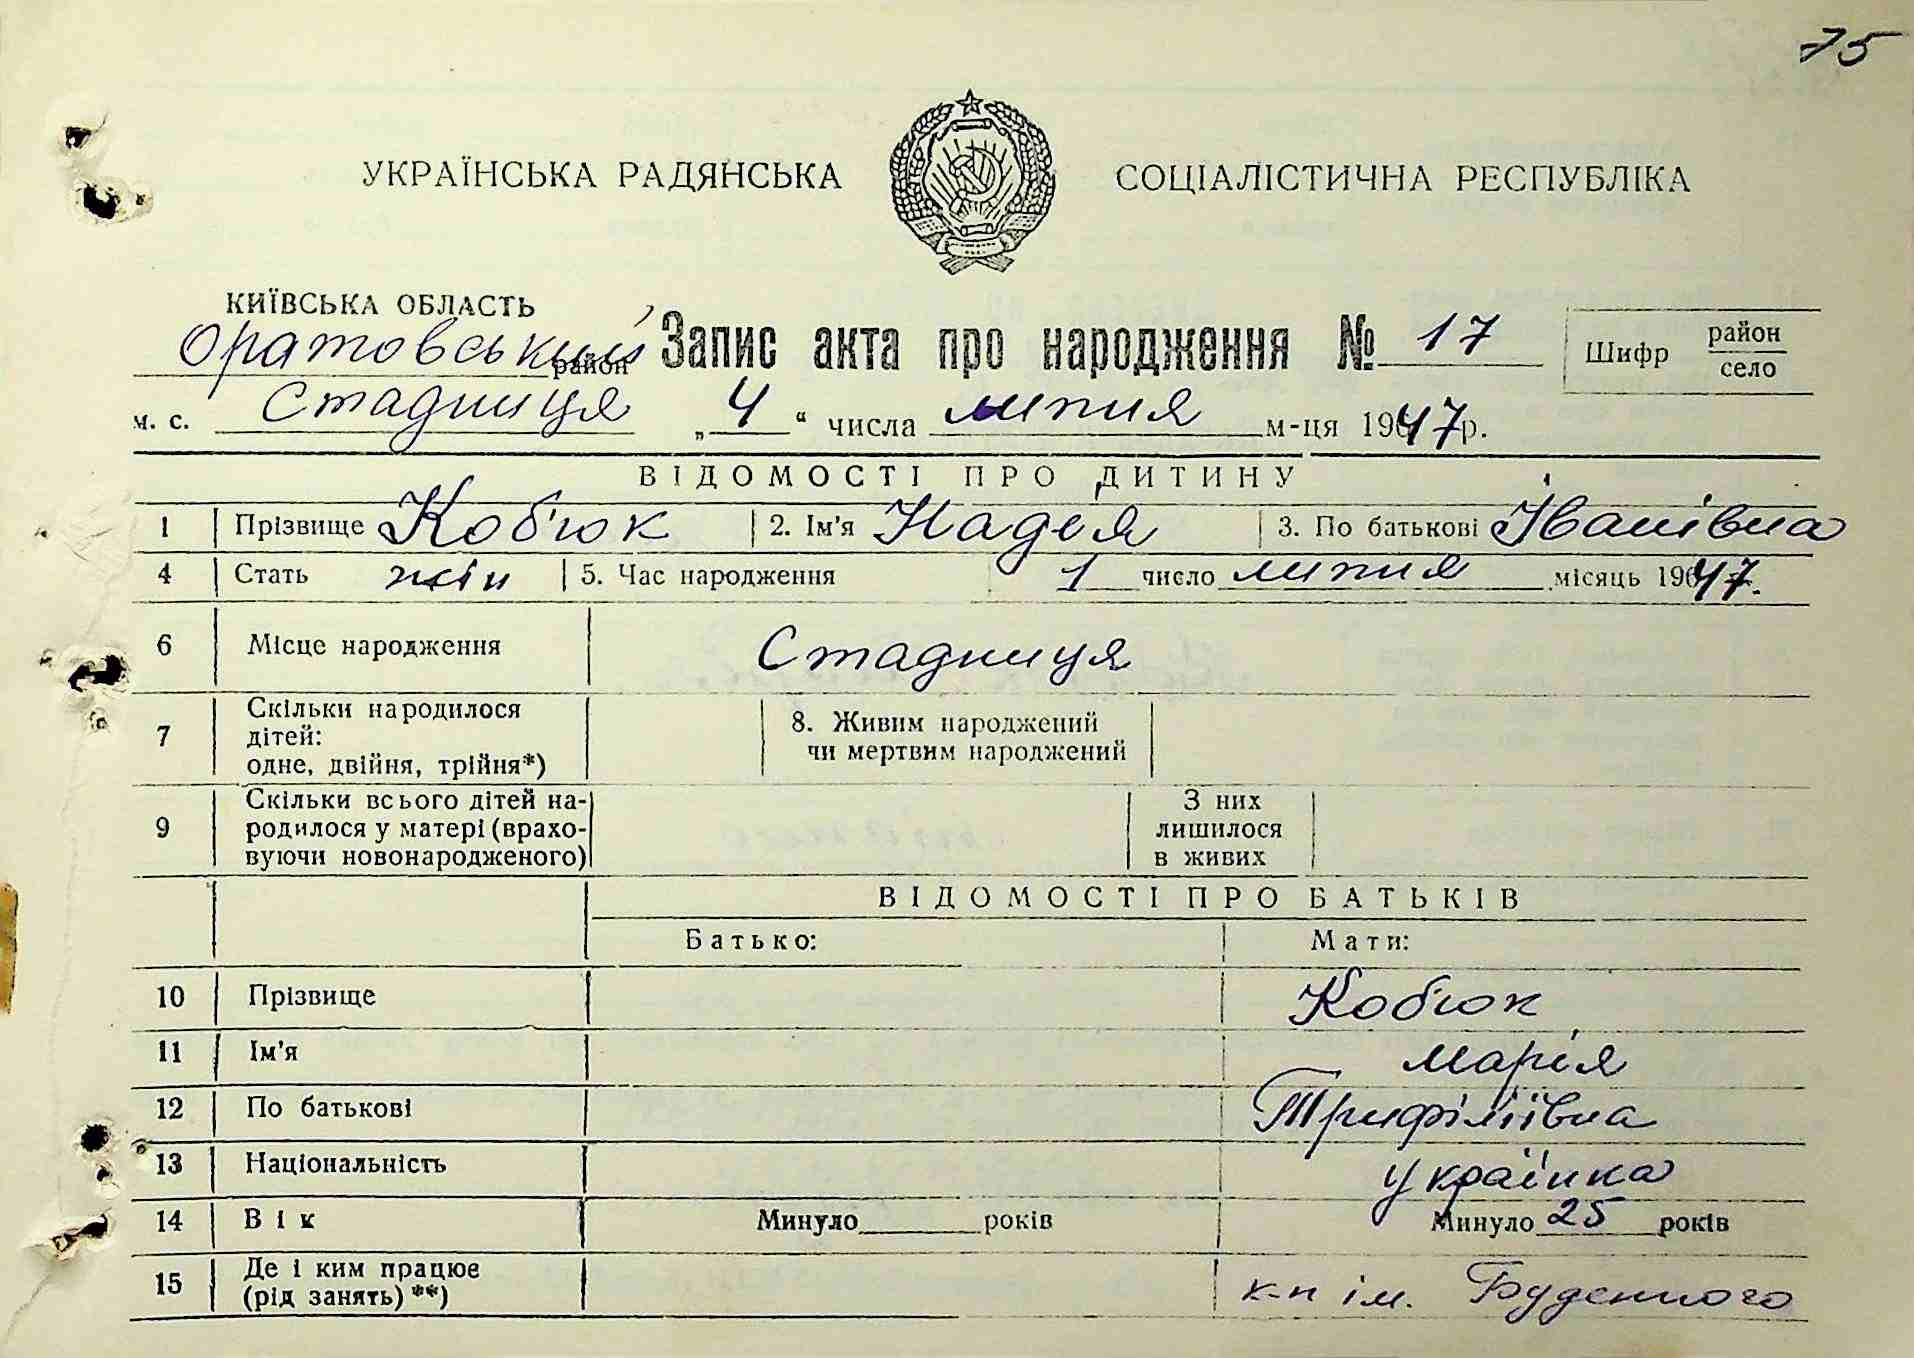 75
УКРАЇНСЬКА РАДЯНСЬКА СОЦІАЛІСТИЧНА РЕСПУБЛІКА
КИЇВСЬКА ОБЛАСТЬ
Оратовський район Запис акта про народження № 17 Шифр район село
м. с. Стадниця „4“ числа липня м-ця 1947р.
ВІДОМОСТІ ПРО ДИТИНУ
1 Прізвище Коб'юк 2. Ім'я Надея 3. По батькові Іванівна
4 Стать жін 5. Час народження 1 число липня місяць 1947.
6 Місце народження Стадниця
7 Скільки народилося дітей: одне, двійня, трійня*) 8. Живим народжений чи мертвим народжений
9 Скільки всього дітей народилося у матері (враховуючи новонародженого) З них лишилося в живих
ВІДОМОСТІ ПРО БАТЬКІВ
Батько: Мати:
10 Прізвище Коб'юк
11 Ім'я Марія
12 По батькові Трифіліївна
13 Національність українка
14 Вік Минуло років Минуло 25 років
15 Де і ким працює (рід занять) **) к-п ім. Буденного